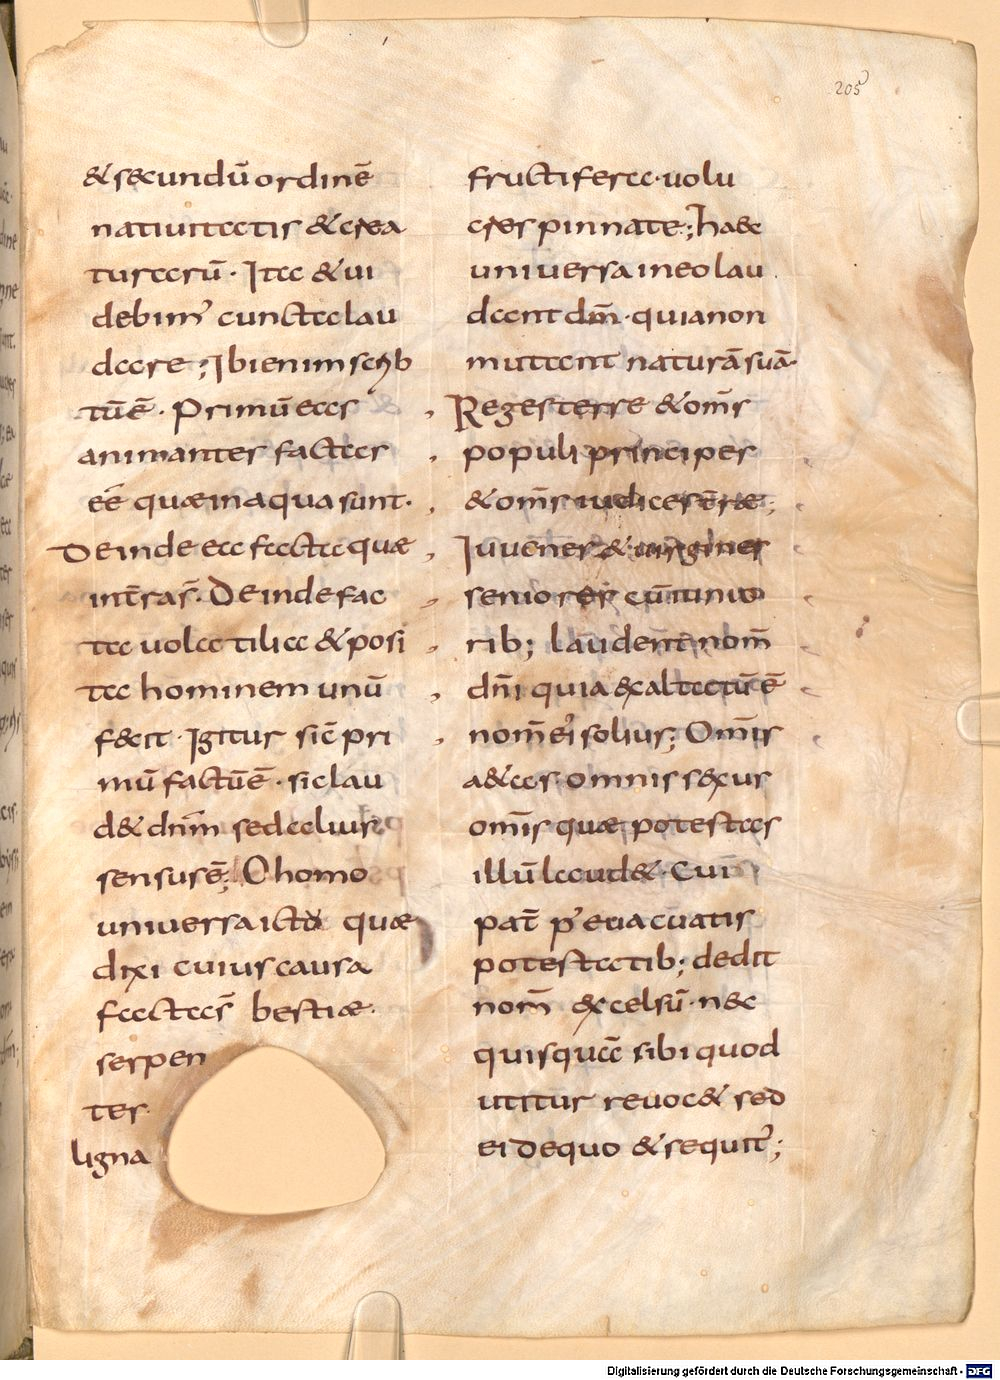 205
& secundū ordinē
natiuitatis & crea
turarū · Ita & ui
debim' cuncta lau
dare ; Ibi enim scrib
tū ē · Primū eas
animantes factas
eē quæ in aqua sunt ·
Deinde ea facta quæ
in t̄ras̄ · Deinde fac
ta uolatilia & posi
ta hominem unū
fecit · Igitur sic̄ pri
mū factū ē · sic lau
d& dn̄m sed alius
sensus ē; O homo
uniuersa ista quæ
dixi cuius causa
facta s̄ bestiæ ·
serpen
tes
ligna
fructifera · uolu
cres pinnate ; hæc
uniuersa in eo lau
dant dm̄ · quia non
mutant naturā suā ·
Reges terre & om̄s
populi principes
& om̄s iudices t̄ræ ;
Iuuenes & uirgines
seniores cū iunio
rib; laudent nom̄
dn̄i quia exaltatū ē
nom̄ ei' solius ; Om̄is
a&as omnis sexus
om̄is quæ potestas
illū laud& · Cui
pat̄ p' euacuatis
potestatib; dedit
nom̄ excelsū · nec
quisquā sibi quod
utitur reuoc& sed
ei de quo & sequit';
Digitalisierung gefördert durch die Deutsche Forschungsgemeinschaft - DFG